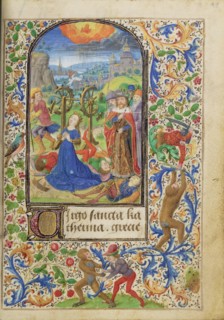 Virgo sancta ka
therina. grecie